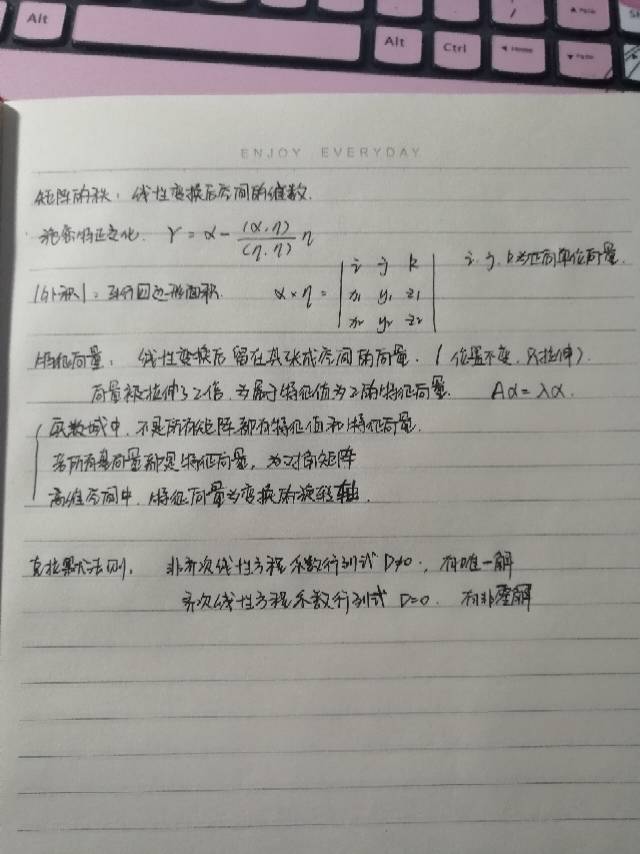 Alt
Alt
Ctrl
ENJOY EVERYDAY
矩阵的秩：线性变换后空间的维数.
施密特正交化. γ = α - (α.η)/(η.η) η
|外积| = 平行四边形面积. α × η = | i j k | i. j. k为正向单位向量.
x₁ y₁ z₁
x₂ y₂ z₂
特征向量： 线性变换后留在其张成空间的向量. (位置不变, 只拉伸).
向量被拉伸了2倍, 为属于特征值为2的特征向量. Aα = λα.
实数域中, 不是所有矩阵都有特征值和特征向量.
若所有基向量都是特征向量, 为对角矩阵
高维空间中, 特征向量为变换的旋转轴.
克拉默法则. 非齐次线性方程系数行列式 D≠0., 有唯一解
齐次线性方程系数行列式 D=0. 有非零解